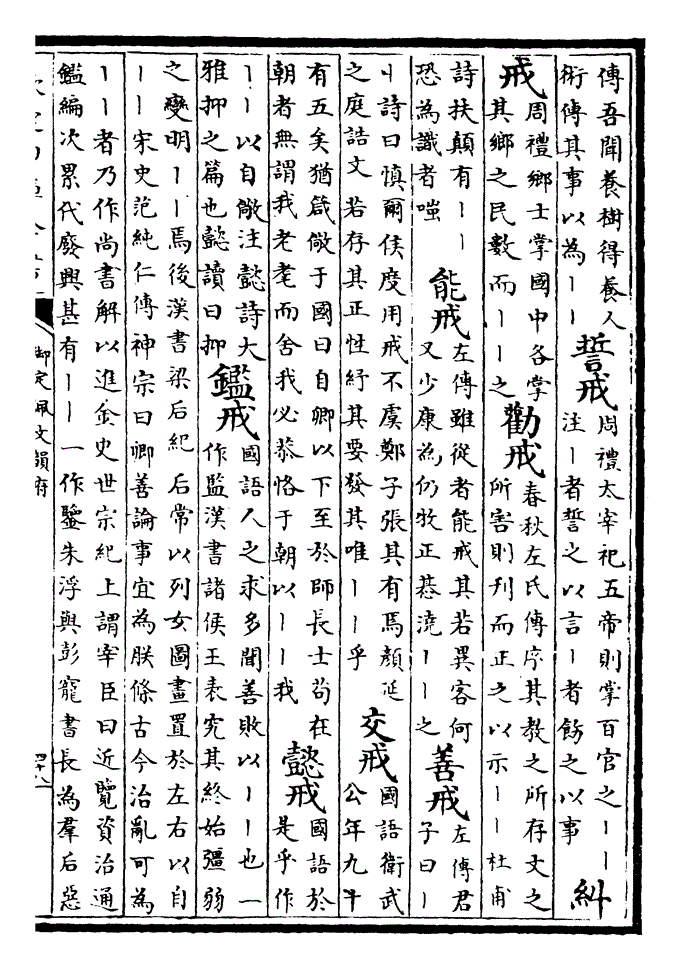 傳吾聞養樹得養人
術傳其事以為丨丨
誓戒
周禮太宰祀五帝則掌百官之丨丨
注丨者誓之以言丨者飭之以事
糾
戒
周禮鄉士掌國中各掌
其鄉之民數而丨丨之
勸戒
春秋左氏傳序其教之所存文之
所害則刋而正之以示丨丨杜甫
詩扶顛有丨丨
恐為識者嗤
能戒
左傳雖從者能戒其若異客何
又少康為仍牧正惎澆丨丨之
善戒
左傳君
子曰丨
丨詩曰慎爾侯度用戒不虞鄭子張其有焉顏延
之庭誥文若存其正性紓其要發其唯丨丨乎
交戒
國語衛武
公年九十
有五矣猶箴儆于國曰自卿以下至於師長士苟在
朝者無謂我老耄而舍我必恭恪于朝以丨丨我
懿戒
國語於
是乎作
丨丨以自儆注懿詩大
雅抑之篇也懿讀曰抑
鑑戒
國語人之求多聞善敗以丨丨也一
作監漢書諸侯王表究其終始彊弱
之變明丨丨焉後漢書梁后紀后常以列女圖畫置於左右以自
丨丨宋史范純仁傳神宗曰卿善論事宜為朕條古今治亂可為
丨丨者乃作尚書解以進金史世宗紀上謂宰臣曰近覽資治通
鑑編次累代廢興甚有丨丨一作鑒朱浮與彭寵書長為羣后惡
御定佩文韻府
四十八